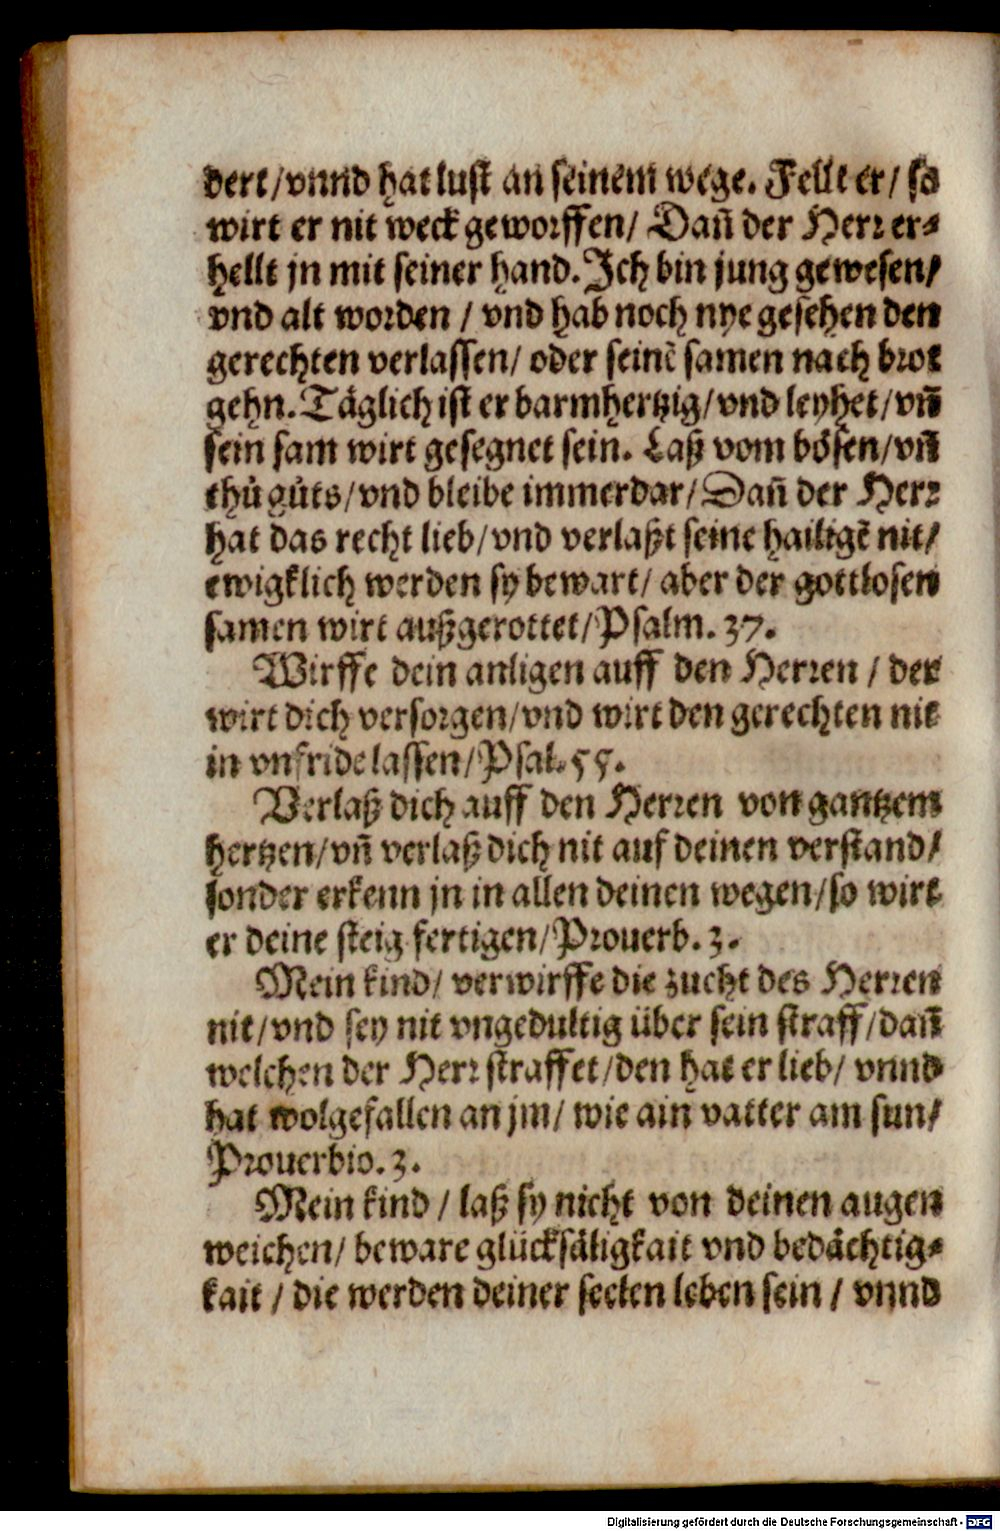 dert/vnnd hat lust an seinem wege. Fellt er/ so
wirt er nit weck geworffen/ Dañ der Herr er⸗
hellt jn mit seiner hand. Ich bin jung gewesen/
vnd alt worden / vnd hab noch nye gesehen den
gerechten verlassen/ oder seinẽ samen nach brot
gehn. Täglich ist er barmhertzig/vnd leyhet/vñ
sein sam wirt gesegnet sein. Laß vom bösen/vñ
thů gůts/vnd bleibe immerdar/ Dañ der Herr
hat das recht lieb/vnd verlaßt seine hailigẽ nit/
ewigklich werden sy bewart/ aber der gottlosen
samen wirt außgerottet/Psalm. 37.
Wirffe dein anligen auff den Herren / der
wirt dich versorgen/vnd wirt den gerechten nit
in vnfride lassen/Psal. 55.
Verlaß dich auff den Herren von gantzem
hertzen/vñ verlaß dich nit auf deinen verstand/
sonder erkenn jn in allen deinen wegen/so wirt
er deine steig fertigen/Prouerb. 3.
Mein kind/ verwirffe die zucht des Herren
nit/vnd sey nit vngedultig über sein straff/dañ
welchen der Herr straffet/den hat er lieb/ vnnd
hat wolgefallen an jm/ wie ain vatter am sun/
Prouerbio. 3.
Mein kind / laß sy nicht von deinen augen
weichen/ beware glücksäligkait vnd bedächtig⸗
kait / die werden deiner seelen leben sein / vnnd
Digitalisierung gefördert durch die Deutsche Forschungsgemeinschaft - DFG